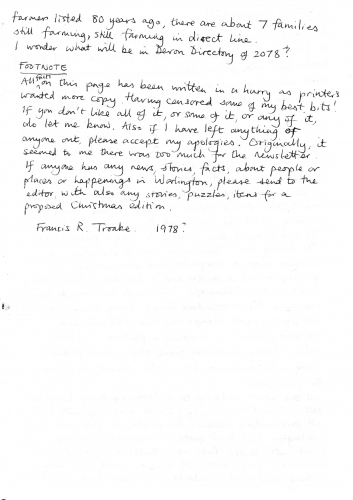 farmer listed 80 years ago, there are about 7 families
still farming, still farming in direct line.
I wonder what will be in Devon Directory of 2078?
FOOTNOTE
All facts on this page has been written in a hurry as printers
wanted more copy. Having censored some of my best bits!
If you don't like all of it, or some of it, or any of it,
do let me know. Also if I have left anything or
anyone out, please accept my apologies. Originally, it
seemed to me there was too much for the newsletter.
If anyone has any news, stories, facts, about people or
places or happenings in Warlington, please send to the
editor with also any stories, puzzles, items for a
proposed Christmas edition.
Francis R. Troake. 1978?